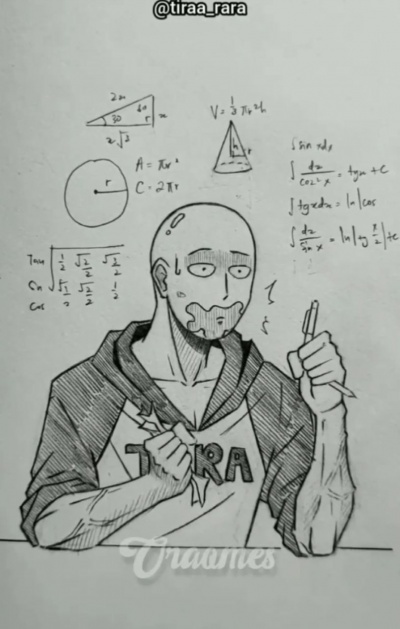 @tiraa_rara
2x
60
30
r
x
x√3
V = 1/3 πr²h
h
r
A = πr²
C = 2πr
r
∫sin xdx
∫ dx/cos²x = tgx + c
∫tgxdx = ln|cos
∫ dx/sin x = ln|tg x/2|+c
Tan
Sin
Cos
1/2 √2/2 √3/2
√3/2 √2/2 1/2
T RA
Uraomes